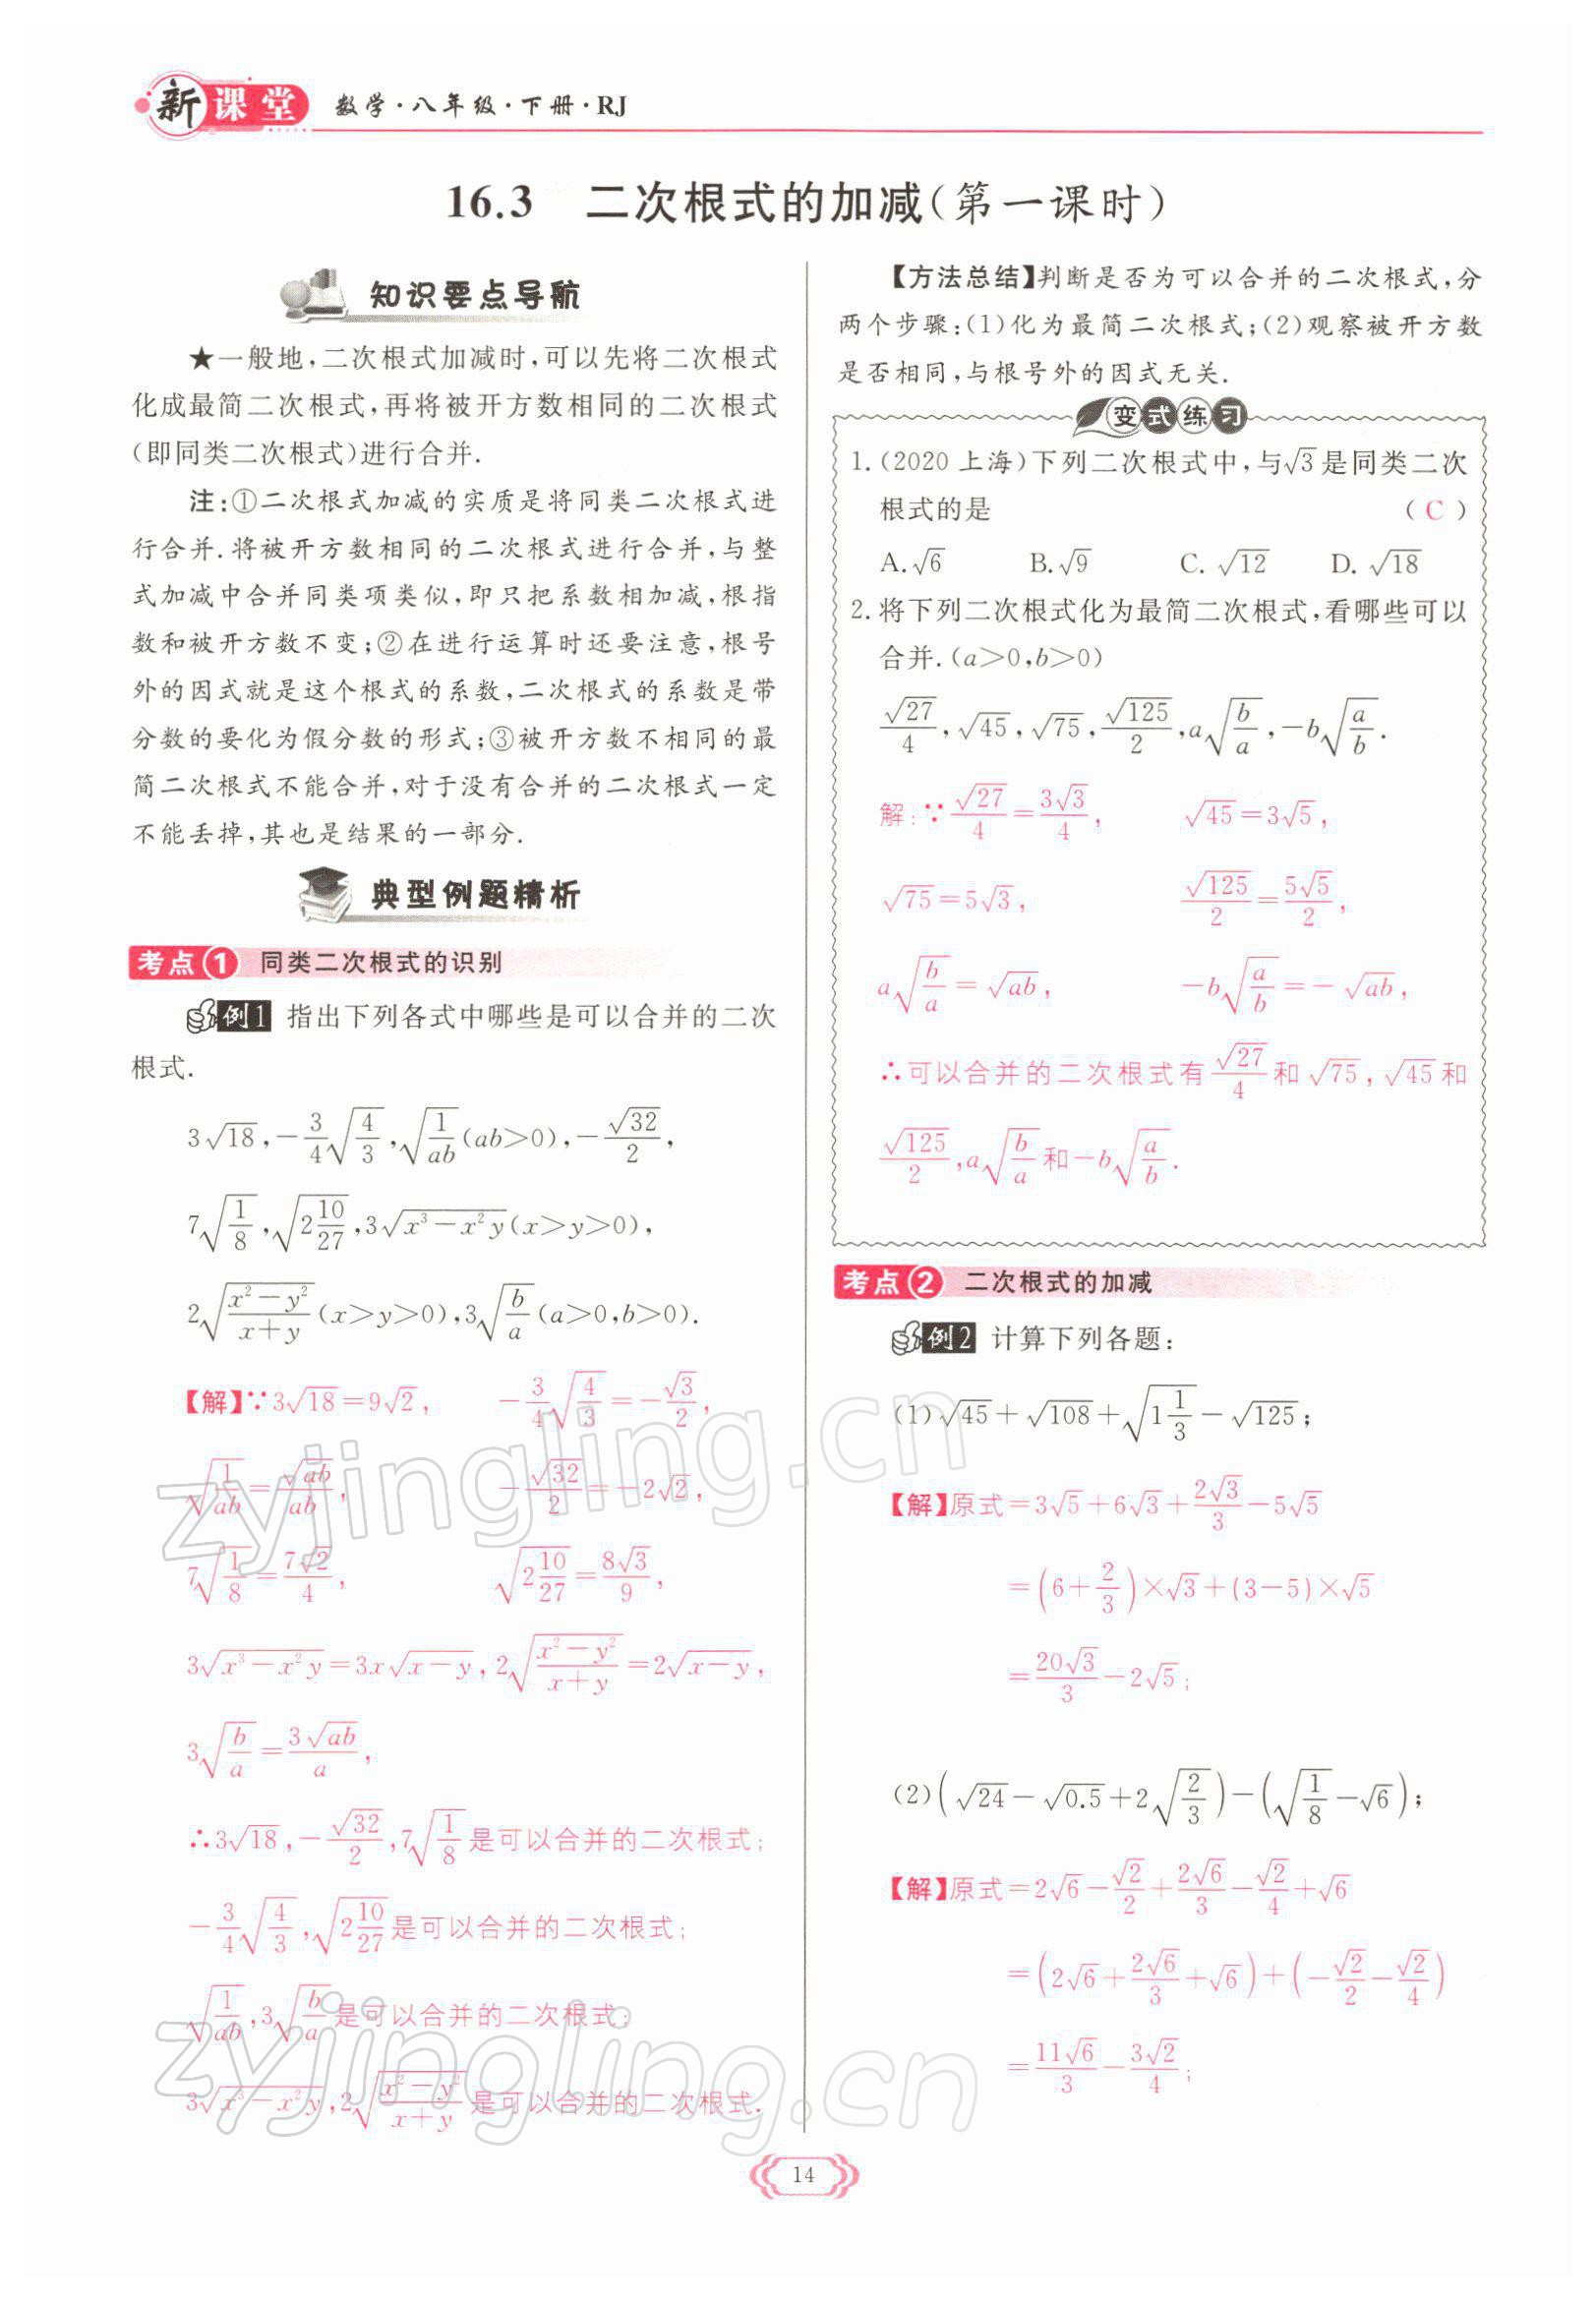 新课堂 数学·八年级·下册·RJ
16.3 二次根式的加减(第一课时)
知识要点导航
★一般地,二次根式加减时,可以先将二次根式
化成最简二次根式,再将被开方数相同的二次根式
(即同类二次根式)进行合并.
注:①二次根式加减的实质是将同类二次根式进
行合并.将被开方数相同的二次根式进行合并,与整
式加减中合并同类项类似,即只把系数相加减,根指
数和被开方数不变;②在进行运算时还要注意,根号
外的因式就是这个根式的系数,二次根式的系数是带
分数的要化为假分数的形式;③被开方数不相同的最
简二次根式不能合并,对于没有合并的二次根式一定
不能丢掉,其也是结果的一部分.
典型例题精析
考点1 同类二次根式的识别
例1 指出下列各式中哪些是可以合并的二次
根式.
3√18,-3/4√(4/3),√(1/ab)(ab>0),-√32/2,
7√(1/8),√(2 10/27),3√(x³-x²y)(x>y>0),
2√((x²-y²)/(x+y))(x>y>0),3√(b/a)(a>0,b>0).
【解】∵3√18=9√2, -3/4√(4/3)=-√3/2,
√(1/ab)=√ab/ab, -√32/2=-2√2,
7√(1/8)=7√2/4, √(2 10/27)=8√3/9,
3√(x³-x²y)=3x√(x-y),2√((x²-y²)/(x+y))=2√(x-y),
3√(b/a)=3√ab/a,
∴3√18,-√32/2,7√(1/8)是可以合并的二次根式;
-3/4√(4/3),√(2 10/27)是可以合并的二次根式;
√(1/ab),3√(b/a)是可以合并的二次根式;
3√(x³-x²y),2√((x²-y²)/(x+y))是可以合并的二次根式.
【方法总结】判断是否为可以合并的二次根式,分
两个步骤:(1)化为最简二次根式;(2)观察被开方数
是否相同,与根号外的因式无关.
变式练习
1.(2020上海)下列二次根式中,与√3是同类二次
根式的是 (C)
A.√6 B.√9 C.√12 D.√18
2.将下列二次根式化为最简二次根式,看哪些可以
合并.(a>0,b>0)
√27/4,√45,√75,√125/2,a√(b/a),-b√(a/b).
解:∵√27/4=3√3/4, √45=3√5,
√75=5√3, √125/2=5√5/2,
a√(b/a)=√ab, -b√(a/b)=-√ab,
∴可以合并的二次根式有√27/4和√75,√45和
√125/2,a√(b/a)和-b√(a/b).
考点2 二次根式的加减
例2 计算下列各题:
(1)√45+√108+√(1 1/3)-√125;
【解】原式=3√5+6√3+2√3/3-5√5
=(6+2/3)×√3+(3-5)×√5
=20√3/3-2√5;
(2)(√24-√0.5+2√(2/3))-(√(1/8)-√6);
【解】原式=2√6-√2/2+2√6/3-√2/4+√6
=(2√6+2√6/3+√6)+(-√2/2-√2/4)
=11√6/3-3√2/4;
14
zyjingling.cn
zyjingling.cn